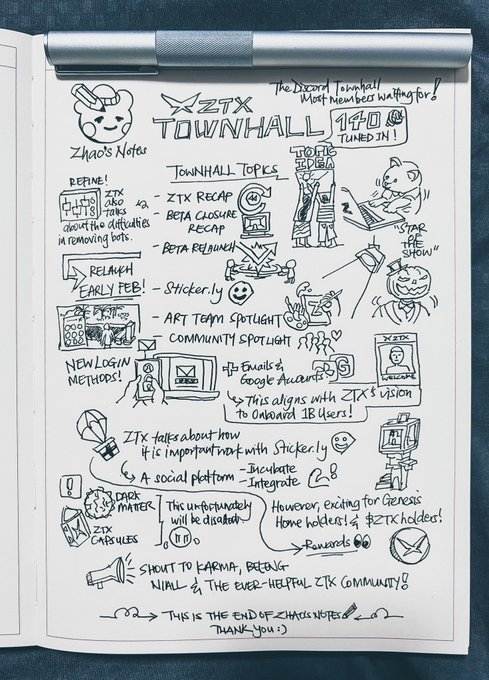 The Discord Townhall
Most Members waiting for!
ZTX
TOWNHALL
140
TUNED IN!
Zhao's Notes
TOPIC
IDEA
TOWNHALL TOPICS
- ZTX RECAP
- BETA CLOSURE
RECAP
- BETA RELAUNCH
- Sticker.ly
- ART TEAM SPOTLIGHT
COMMUNITY SPOTLIGHT
REFINE!
ZTX
also
talks
about the difficulties
in removing bots.
RELAUCH
EARLY FEB!
"STAR
OF
THE
SHOW"
NEW LOGIN
METHODS!
+ Emails &
Google Accounts
G
XZTX
WELCOME
This aligns with ZTX's vision
to Onboard 1B Users!
ZTX talks about how
it is important work with Sticker.ly
A social platform
- Incubate
- Integrate
!
DARK
MATTER
ZTX
CAPSULES
This unfortunately
will be
However, exciting for Genesis
Home holders! & $ZTX holders!
Rewards
SHOUT TO KARMA, BELENG
NIALL & THE EVER-HELPFUL ZTX COMMUNITY!
THIS IS THE END OF ZHAO'S NOTES
THANK YOU :)